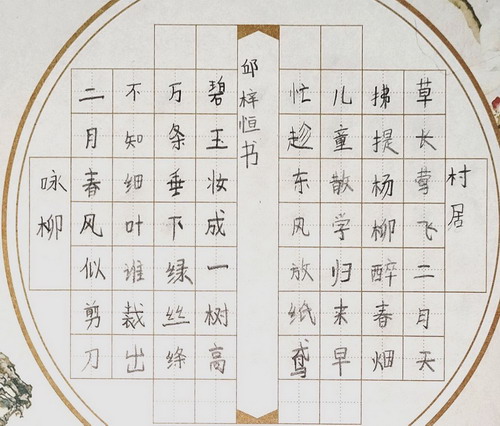 村居
草长莺飞二月天
拂提杨柳醉春烟
儿童散学归来早
忙趁东风放纸鸢
邱梓恒书
碧玉妆成一树高
万条垂下绿丝绦
不知细叶谁裁出
二月春风似剪刀
咏柳